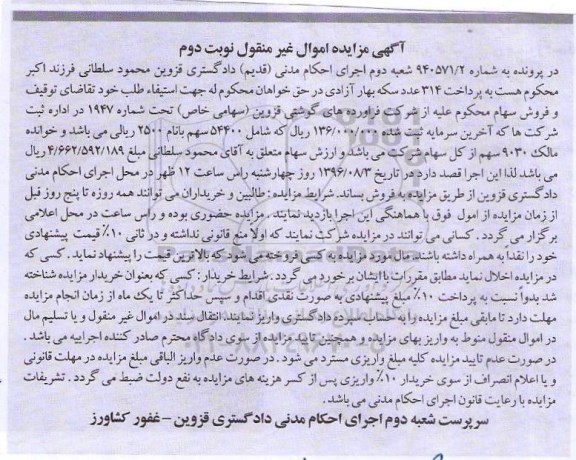 آگهی مزایده اموال غیر منقول نوبت دوم
در پرونده به شماره ۹۴۰۵۷۱/۲ شعبه دوم اجرای احکام مدنی (قدیم) دادگستری قزوین محمود سلطانی فرزند اکبر
محکوم هست به پرداخت ۳۱۴ عدد سکه بهار آزادی در حق خواهان محکوم له جهت استیفاء طلب خود تقاضای توقیف
و فروش سهام محکوم علیه از شرکت فراورده های گوشتی قزوین (سهامی خاص) تحت شماره ۱۹۴۷ در اداره ثبت
شرکت ها که آخرین سرمایه ثبت شده ۱۳۶/۰۰۰/۰۰۰ ریال که شامل ۵۴۴۰۰ سهم بانام ۲۵۰۰ ریالی می باشد و خوانده
مالک ۹۰۳۰ سهم از کل سهام شرکت می باشد و ارزش سهام متعلق به آقای محمود سلطانی مبلغ ۴/۶۶۲/۵۹۲/۱۸۹ ریال
می باشد لذا این اجرا قصد دارد در تاریخ ۱۳۹۶/۰۸/۳ روز چهارشنبه راس ساعت ۱۲ ظهر در محل اجرای احکام مدنی
دادگستری قزوین از طریق مزایده به فروش بساند. شرایط مزایده : طالبین و خریداران می توانند همه روزه تا پنج روز قبل
از زمان مزایده از اموال فوق با هماهنگی این اجرا بازدید نمایند . مزایده حضوری بوده و راس ساعت در محل اعلامی
برگزار می گردد . کسانی می توانند در مزایده شرکت نمایند که اولاً منع قانونی نداشته و در ثانی ۱۰٪ قیمت پیشنهادی
خود را نقداً به همراه داشته باشند. مال مورد مزایده به کسی فروخته می شود که بالاترین قیمت را پیشنهاد نماید . کسی که
در مزایده اخلال نماید مطابق مقررات با ایشان برخورد می گردد . شرایط خریدار : کسی که بعنوان خریدار مزایده شناخته
شد بدواً نسبت به پرداخت ۱۰٪ مبلغ پیشنهادی به صورت نقدی اقدام و سپس حداکثر تا یک ماه از زمان انجام مزایده
مهلت دارد تا مابقی مبلغ مزایده را به حساب سپرده دادگستری واریز نمایند. انتقال سند در اموال غیر منقول و یا تسلیم مال
در اموال منقول منوط به واریز بهای مزایده و همچنین تایید مزایده از سوی دادگاه محترم صادر کننده اجراییه می باشد .
در صورت عدم تایید مزایده کلیه مبلغ واریزی مسترد می شود . در صورت عدم واریز الباقی مبلغ مزایده در مهلت قانونی
و یا اعلام انصراف از سوی خریدار ۱۰٪ واریزی پس از کسر هزینه های مزایده به نفع دولت ضبط می گردد . تشریفات
مزایده با رعایت قانون اجرای احکام مدنی می باشد .
سرپرست شعبه دوم اجرای احکام مدنی دادگستری قزوین – غفور کشاورز